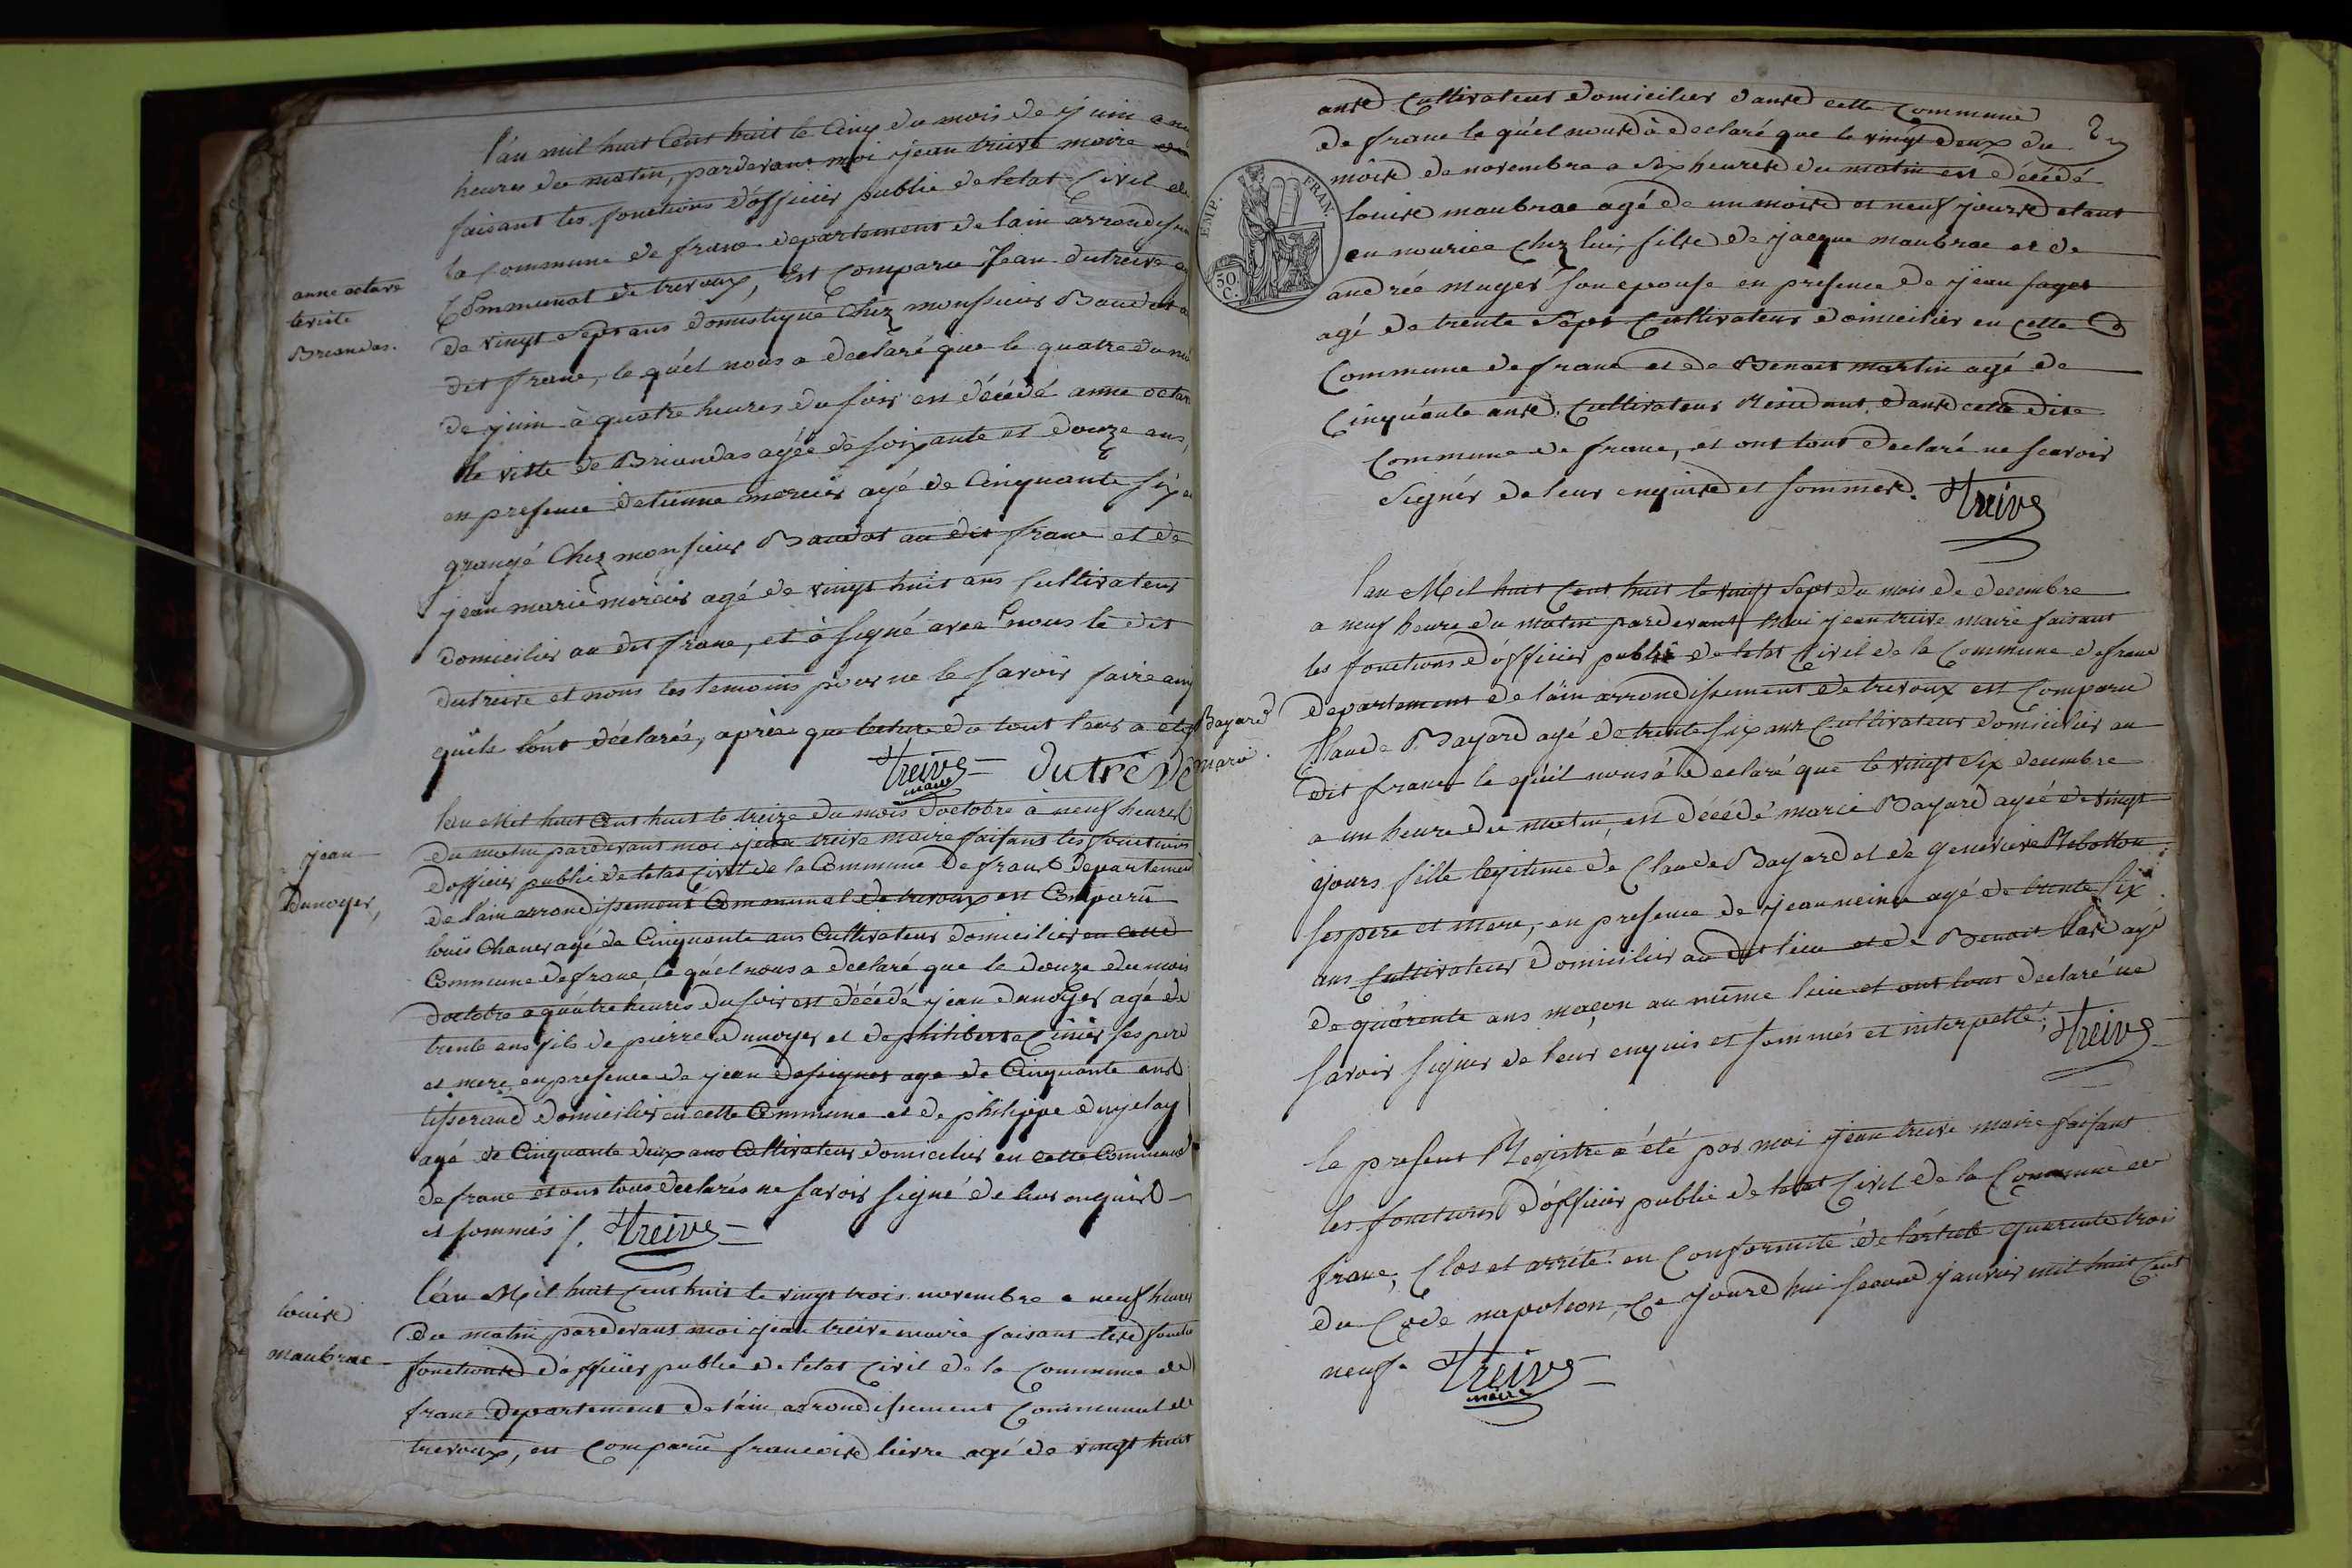 l'an mil huit Cent huit le Cinq du mois de juin a neuf
heures du matin, pardevant moi jean treive maire
faisant les fonctions d'officier public de letat Civil de
la Commune de franc departement de lain arrondissem
Communal de trevoux, Est Comparu Jean dutreive agé
anne octave
teviste
Briandas.
de vingt Sept ans domestique Chez monsieur Baudot au
dit franc, le quél nous a declaré que le quatre du moi
de juin à quatre heures du soir est décédé anne octave
te viste de Briandas agée de soixante et douze ans,
en presence detienne mercier agé de Cinquante six an
grangé Chez monsieur Baudot au dit franc et de
jean marie mercier agé de vingt huit ans Cultivateur
domicilier au dit franc, et à signé avec nous le dit
dutreive et nous les temoins pour ne le savoir faire ainsi
quils l'ont déclarés, après que lecture du tout leur a eté
treive
maire
dutrévé
jean
Dunoyer,
lan Mil huit Cent huit le treize du mois doctobre à neuf heures
du matin pardevant moi jean treive maire faisant les fonctions
d'officier public de letat Civil de la Commune de franc departement
de lain arrondissement Communal de trevoux est Comparu
louis Chaner agé de Cinquante ans Cultivateur domicilier en cette
Commune de franc, le quél nous a declaré que le douze du mois
doctobre a quatre heures du soir est décédé jean dunoyer agé de
trente ans fils de pierre dunoyer et de philiberte Cinier ses pere
et mere, en presence de jean designes age de Cinquante ans
tisserand domicilier en cette Commune et de philippe dujelay
agé de Cinquante deux ans Cultivateur domicilier en cette Commune
de franc et ont tous declarés ne savoir signé de leur enquis
et sommés /. treive
louise
maubrac
l'an Mil huit Cent huit le vingt trois novembre a neuf heures
du matin pardevant moi jean treive maire faisant les foncti
fonctions d'officier public de letat Civil de la Commune de
franc departement de l'ain, arrondissement Communal de
trevoux, est Comparu francoise lievre agé de vingt huit
2
ans Cultivateur domicilier dans cette Commune
de franc le quél nous à declaré que le vingt deux du
mois de novembre a Six heures du matin est décédé
EMP. FRAN.
50 C.
louise maubrac agé de un mois et neuf jours etant
en nourice Chez lui, fille de jacque maubrac et de
andrée muger son epouse en presence de jean sages
agé de trente Sept Cultivateur domicilier en cette
Commune de franc et de Benoit martin agé de
Cinquante ans, Cultivateur Residant dans cette dite
Commune de franc, et ont tous declaré ne scavoir
Signér de leur enquise et sommes. treive
lan Mil huit Cent huit le vingt Sept du mois de decembre
a neuf heure du matin pardevant moi jean treive maire faisant
les fonctions d'officier public de letat Civil de la Commune de franc
Bayard
marie.
departement de läin arrondissement de trevoux est Comparu
Claude Bayard agé de trente six ans Cultivateur domicilier au
dit franc le quél nous á declaré que le vingt Six decembre
a un heure du matin, est décédé marie Bayard agéé de vingt
jours fille legitime de Claude Bayard et de genevieve Rebotton
ses pere et mere, en presence de jean agé de trente six
ans Cultivateur domicilier au dit lieu et de Benoit agé
de quarente ans maçon au même lieu et ont tous declaré ne
savoir signer de leur enquis et sommés et interpellé; treive
le present Registre a été par moi jean treive maire faisant
les fonctions d'officier public de letat Civil de la Commune de
franc, Clos et arrété en Conformité de lárticle quarente trois
du Code napoleon, Ce jourd hui second janvier mil huit Cent
neuf. treive
maire